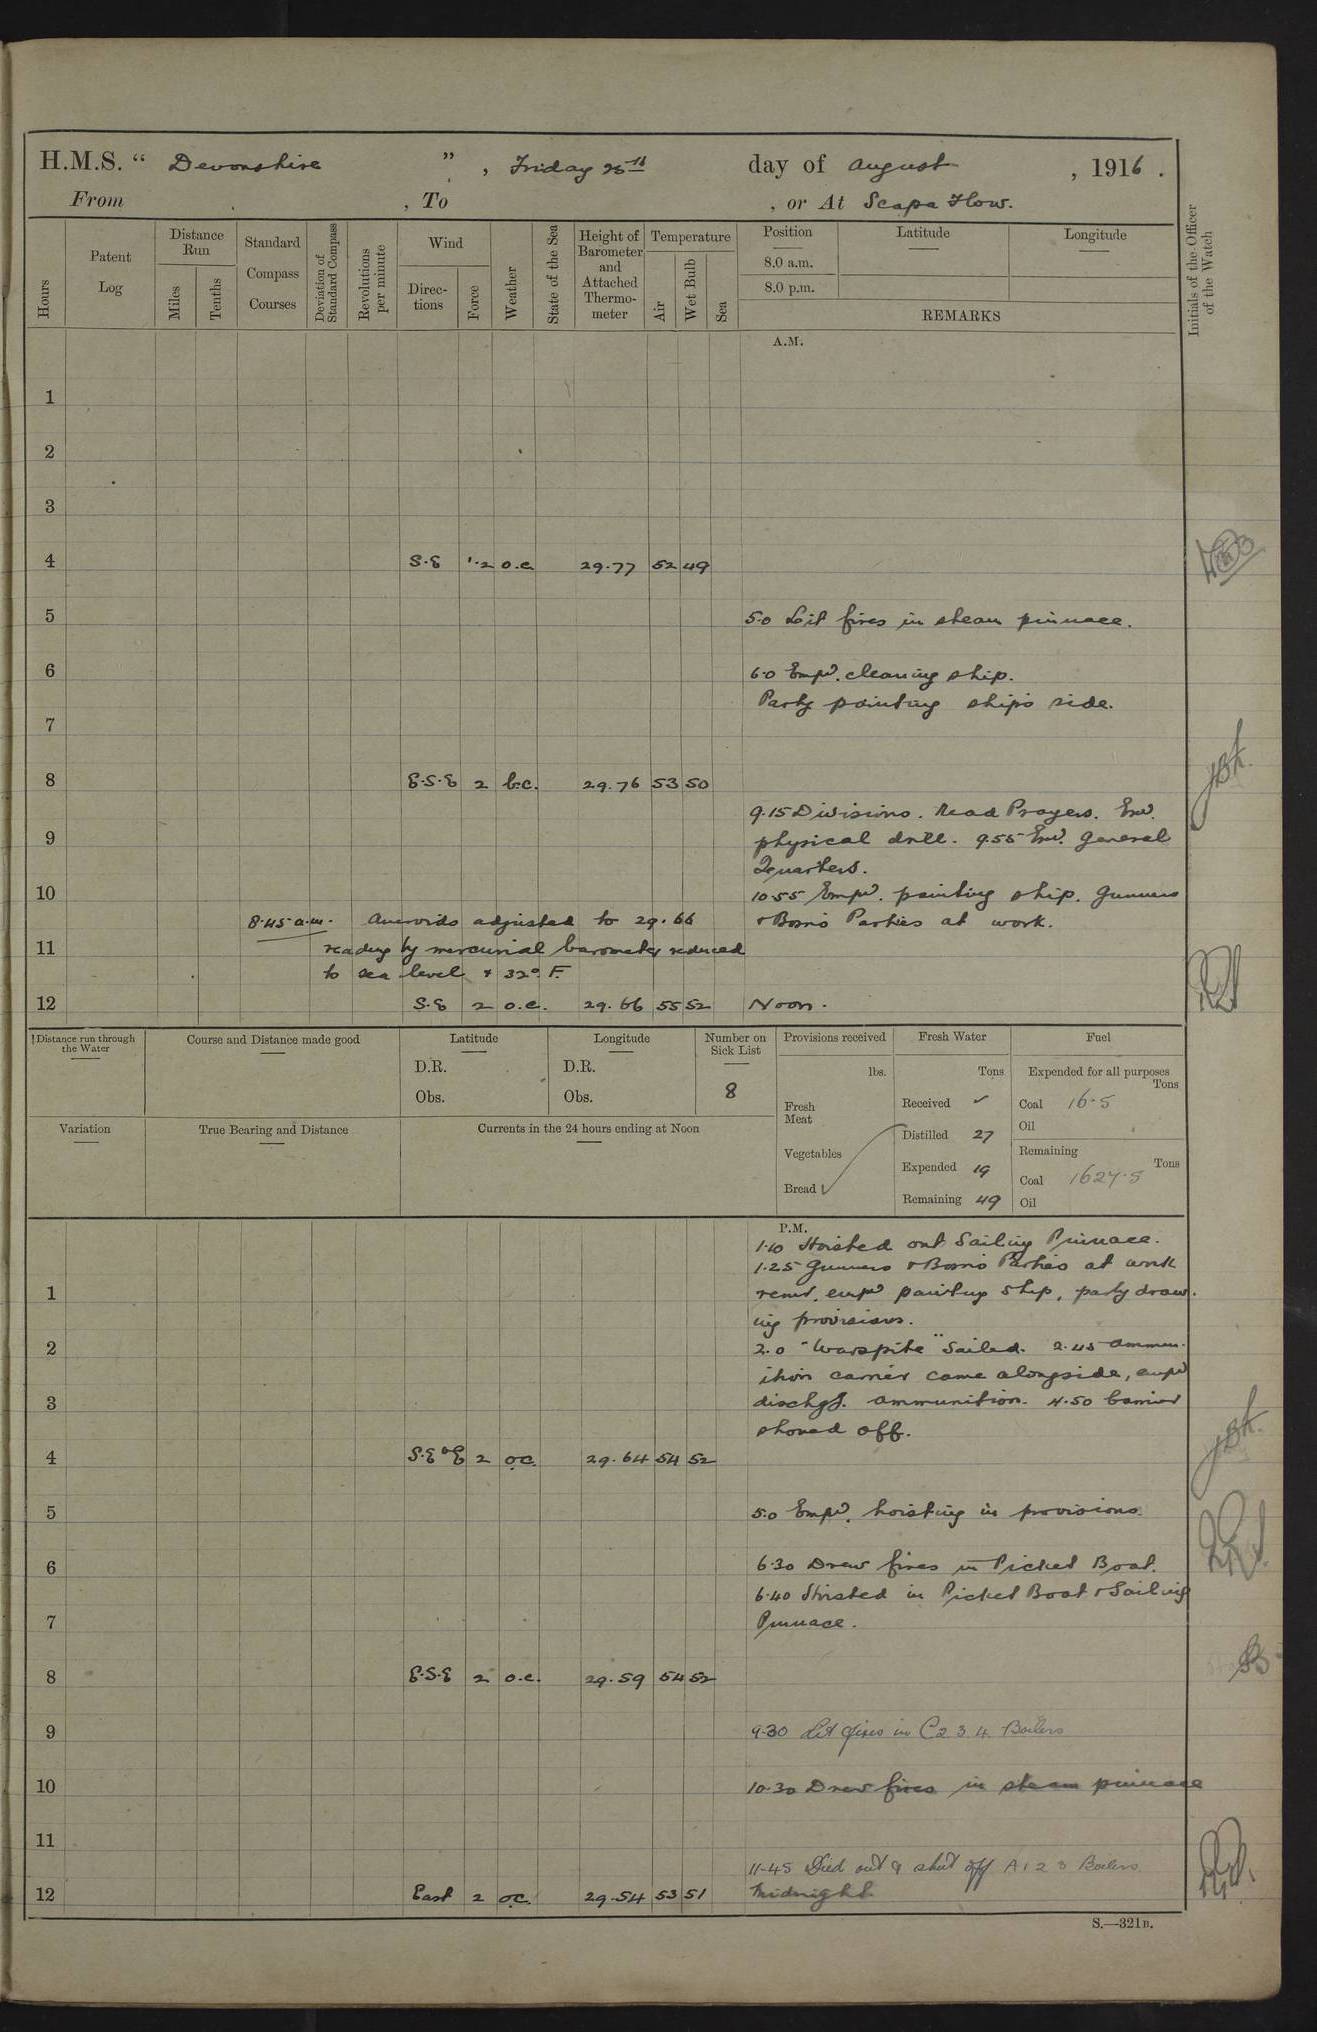 H.M.S. “ Devonshire ” , Friday 25th day of August , 1916 .
From , To , or At Scapa Flow.
Hours
Patent Log
Distance Run
Miles
Tenths
Standard Compass Courses
Deviation of Standard Compass
Revolutions per minute
Wind
Directions
Force
Weather
State of the Sea
Height of Barometer and Attached Thermometer
Temperature
Air
Wet Bulb
Sea
Position
8.0 a.m.
8.0 p.m.
Latitude
Longitude
REMARKS
Initials of the Officer of the Watch
A.M.
1
2
3
4 S.E 1.2 o.c. 29.77 52 49
5 5.0 Lit fires in steam pinnace.
6 6.0 Empd. cleaning ship.
Party painting ship's side.
7
8 E.S.E 2 b.c. 29.76 53 50
9.15 Divisions. Read Prayers. Exd.
9 physical drill. 9.55 Exd. General
Quarters.
10 10.55 Empd. painting ship. Gunners
8.45 a.m. Aneroids adjusted to 29.66 & Bosns Parties at work.
11 reading by mercurial barometer reduced
to sea level & 32° F.
12 S.E 2 o.c. 29.66 55 52 Noon.
Distance run through the Water
Course and Distance made good
Latitude
D.R.
Obs.
Longitude
D.R.
Obs.
Number on Sick List
8
Provisions received
lbs.
Fresh Meat
Vegetables
Bread
Fresh Water
Tons
Received ✓
Distilled 27
Expended 19
Remaining 49
Fuel
Expended for all purposes
Tons
Coal 16.5
Oil
Remaining
Tons
Coal 1627.5
Oil
Variation
True Bearing and Distance
Currents in the 24 hours ending at Noon
P.M.
1.10 Hoisted out Sailing Pinnace.
1.25 Gunners & Bosns Parties at work
1 remr. empd painting ship, party draw-
ing provisions.
2 2.0 "Warspite" Sailed. 2.45 Ammun-
ition carrier came alongside, empd
3 dischgg. ammunition. 4.50 Carrier
shoved off.
4 S.E by E 2 o.c. 29.64 54 52
5 5.0 Empd. hoisting in provisions.
6 6.30 Drew fires in Picket Boat.
6.40 Hoisted in Picket Boat & Sailing
7 Pinnace.
8 E.S.E 2 o.c. 29.59 54 52
9 9.30 Lit fires in C 2 3 4 Boilers
10 10.30 Drew fires in steam pinnace
11
11-45 Died out & shut off A 1 2 3 Boilers
12 East 2 o.c. 29.54 53 51 Midnight.
S.—321B.